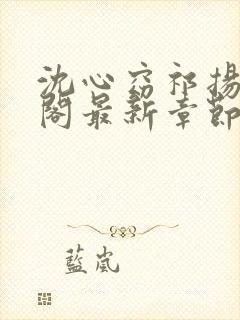 沈心窈祁揚
閣最新章節
藍嵐